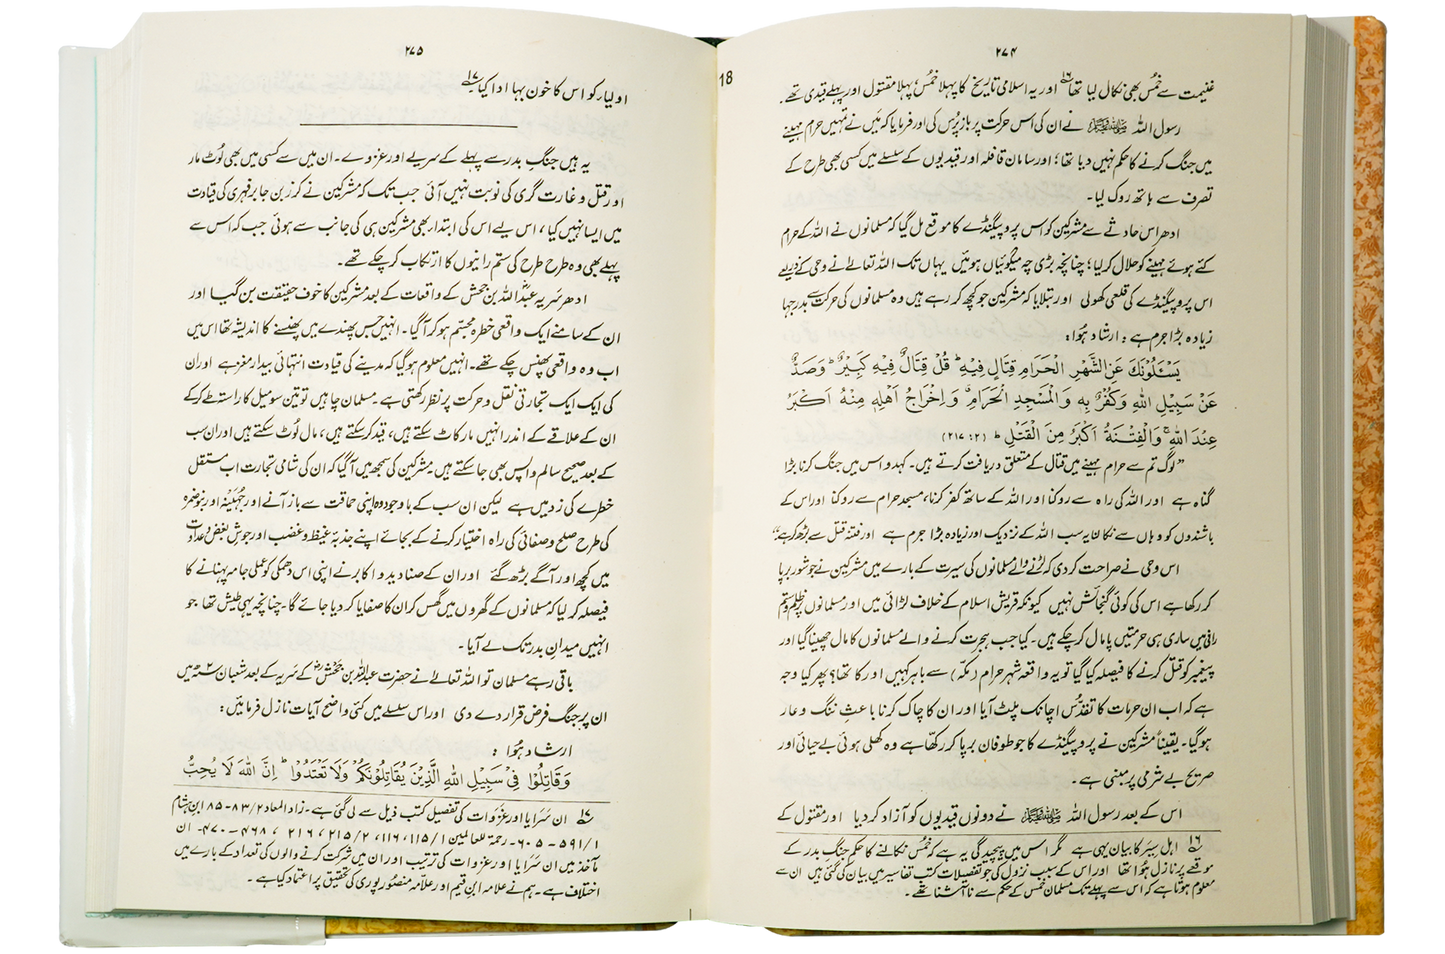 ۲۷۴
غنیمت سے خُمس بھی نکال لیا تھا ۱۶ اور یہ اسلامی تاریخ کا پہلا خُمس، پہلا مقتول اور پہلے قیدی تھے۔
رسول اللہ ﷺ نے ان کی اس حرکت پر باز پُرس کی اور فرمایا کہ مَیں نے تمہیں حرام مہینے
میں جنگ کرنے کا حکم نہیں دیا تھا؛ اور سامان قافلہ اور قیدیوں کے سلسلے میں کسی بھی طرح کے
تصرف سے ہاتھ روک لیا۔
ادھر اس حادثے سے مشرکین کو اس پروپیگنڈے کا موقع مل گیا کہ مسلمانوں نے اللہ کے حرام
کئے ہوئے مہینے کو حلال کر لیا؛ چنانچہ بڑی چہ میگوئیاں ہوئیں یہاں تک اللہ تعالےٰ نے وحی کے ذریعے
اس پروپیگنڈے کی قلعی کھولی اور بتلایا کہ مشرکین جو کچھ کر رہے ہیں وہ مسلمانوں کی حرکت سے بدرجہا
زیادہ بڑا جرم ہے، ارشاد ہُوا:
يَسْـَٔلُوْنَكَ عَنِ الشَّهْرِ الْحَرَامِ قِتَالٍ فِيْهِ ؕ قُلْ قِتَالٌ فِيْهِ كَبِيْرٌ ؕ وَصَدٌّ
عَنْ سَبِيْلِ اللهِ وَكُفْرٌۢ بِهٖ وَالْمَسْجِدِ الْحَرَامِ ۗ وَاِخْرَاجُ اَهْلِهٖ مِنْهُ اَكْبَرُ
عِنْدَ اللهِ ۚ وَالْفِتْنَةُ اَكْبَرُ مِنَ الْقَتْلِ ؕ (۲: ۲۱۷)
"لوگ تم سے حرام مہینے میں قتال کے متعلق دریافت کرتے ہیں۔ کہدو اس میں جنگ کرنا بڑا
گناہ ہے اور اللہ کی راہ سے روکنا اور اللہ کے ساتھ کفر کرنا، مسجد حرام سے روکنا اور اس کے
باشندوں کو وہاں سے نکالنا یہ سب اللہ کے نزدیک اور زیادہ بڑا جرم ہے اور فتنہ قتل سے بڑھ کر ہے"
اس وحی نے صراحت کر دی کہ لڑنے والے مسلمانوں کی سیرت کے بارے میں مشرکین نے جو شور برپا
کر رکھا ہے اس کی کوئی گنجائش نہیں کیونکہ قریش اسلام کے خلاف لڑائی میں اور مسلمانوں پر ظلم و ستم
رانی میں ساری ہی حرمتیں پامال کر چکے ہیں۔ کیا جب ہجرت کرنے والے مسلمانوں کا مال چھینا گیا اور
پیغمبر کو قتل کرنے کا فیصلہ کیا گیا تو یہ واقعہ شہر حرام (مکّہ) سے باہر کہیں اور کا تھا؟ پھر کیا وجہ
ہے کہ اب ان حرمات کا تقدّس اچانک پلٹ آیا اور ان کا چاک کرنا باعثِ ننگ و عار
ہو گیا۔ یقیناً مشرکین نے پروپیگنڈے کا جو طوفان برپا کر رکھا ہے وہ کھلی ہوئی بے حیائی اور
صریح بے شرمی پر مبنی ہے۔
اس کے بعد رسول اللہ ﷺ نے دونوں قیدیوں کو آزاد کر دیا اور مقتول کے
۱۶ اہل سِیَر کا بیان یہی ہے مگر اس میں پیچیدگی یہ ہے کہ خُمس نکالنے کا حکم جنگ بدر کے
موقعے پر نازل ہُوا تھا اور اس کے سبب نزول کی جو تفصیلات کتب تفاسیر میں بیان کی گئی ہیں ان سے
معلوم ہوتا ہے کہ اس سے پہلے تک مسلمان خمس کے حکم سے ناآشنا تھے۔
18
۲۷۵
اولیاء کو اس کا خون بہا ادا کیا ۱۷
یہ ہیں جنگِ بدر سے پہلے کے سریے اور غزوے۔ ان میں سے کسی میں بھی لُوٹ مار
اور قتل و غارت گری کی نوبت نہیں آئی جب تک کہ مشرکین نے کرز بن جابر فہری کی قیادت
میں ایسا نہیں کیا، اس لیے اس کی ابتداء بھی مشرکین ہی کی جانب سے ہوئی جب کہ اس سے
پہلے بھی وہ طرح طرح کی ستم رانیوں کا ارتکاب کر چکے تھے۔
ادھر سَریہ عبداللہؓ بن جحش کے واقعات کے بعد مشرکین کا خوف حقیقت بن گیا اور
ان کے سامنے ایک واقعی خطرہ مجسّم ہو کر آ گیا۔ انہیں جس پھندے میں پھنسنے کا اندیشہ تھا اس میں
اب وہ واقعی پھنس چکے تھے۔ انہیں معلوم ہو گیا کہ مدینے کی قیادت انتہائی بیدار مغز ہے اور ان
کی ایک ایک تجارتی نقل و حرکت پر نظر رکھتی ہے۔ مسلمان چاہیں تو تین سو میل کا راستہ طے کر کے
ان کے علاقے کے اندر انہیں مار کاٹ سکتے ہیں، قید کر سکتے ہیں، مال لُوٹ سکتے ہیں اور ان سب
کے بعد صحیح سالم واپس بھی جا سکتے ہیں مشرکین کی سمجھ میں آ گیا کہ ان کی شامی تجارت اب مستقل
خطرے کی زد میں ہے لیکن ان سب کے باوجود وہ اپنی حماقت سے باز آنے اور جُہَینہ اور بنو ضمرہ
کی طرح صلح و صفائی کی راہ اختیار کرنے کے بجائے اپنے جذبہ غیظ و غضب اور جوشِ بغض و عداوت
میں کچھ اور آگے بڑھ گئے اور ان کے صنادید و اکابر نے اپنی اس دھمکی کو عملی جامہ پہنانے کا
فیصلہ کر لیا کہ مسلمانوں کے گھروں میں گھس کر ان کا صفایا کر دیا جائے گا۔ چنانچہ یہی طیش تھا جو
انہیں میدانِ بدر تک لے آیا۔
باقی رہے مسلمان تو اللہ تعالےٰ نے حضرت عبداللہ بن جحشؓ کے سَریہ کے بعد شعبان ۲ھ میں
ان پر جنگ فرض قرار دے دی اور اس سلسلے میں کئی واضح آیات نازل فرمائیں:
ارشاد ہُوا:
وَقَاتِلُوْا فِيْ سَبِيْلِ اللهِ الَّذِيْنَ يُقَاتِلُوْنَكُمْ وَلَا تَعْتَدُوْا ؕ اِنَّ اللهَ لَا يُحِبُّ
۱۷ ان سَرَایا اور غزَوات کی تفصیل کتب ذیل سے لی گئی ہے۔ زاد المعاد ۲/۸۳-۸۵ ابن ہشام
۱/۵۹۱-۶۰۵- رحمۃ للعالمین ۱/۱۱۵، ۱۱۶، ۲/۲۱۵، ۲۱۶، ۴۶۸-۴۷۰- ان
مآخذ میں ان سَرَایا اور غزوات کی ترتیب اور ان میں شرکت کرنے والوں کی تعداد کے بارے میں
اختلاف ہے۔ ہم نے علامہ ابن قیم اور علّامہ منصُور پوری کی تحقیق پر اعتماد کیا ہے۔